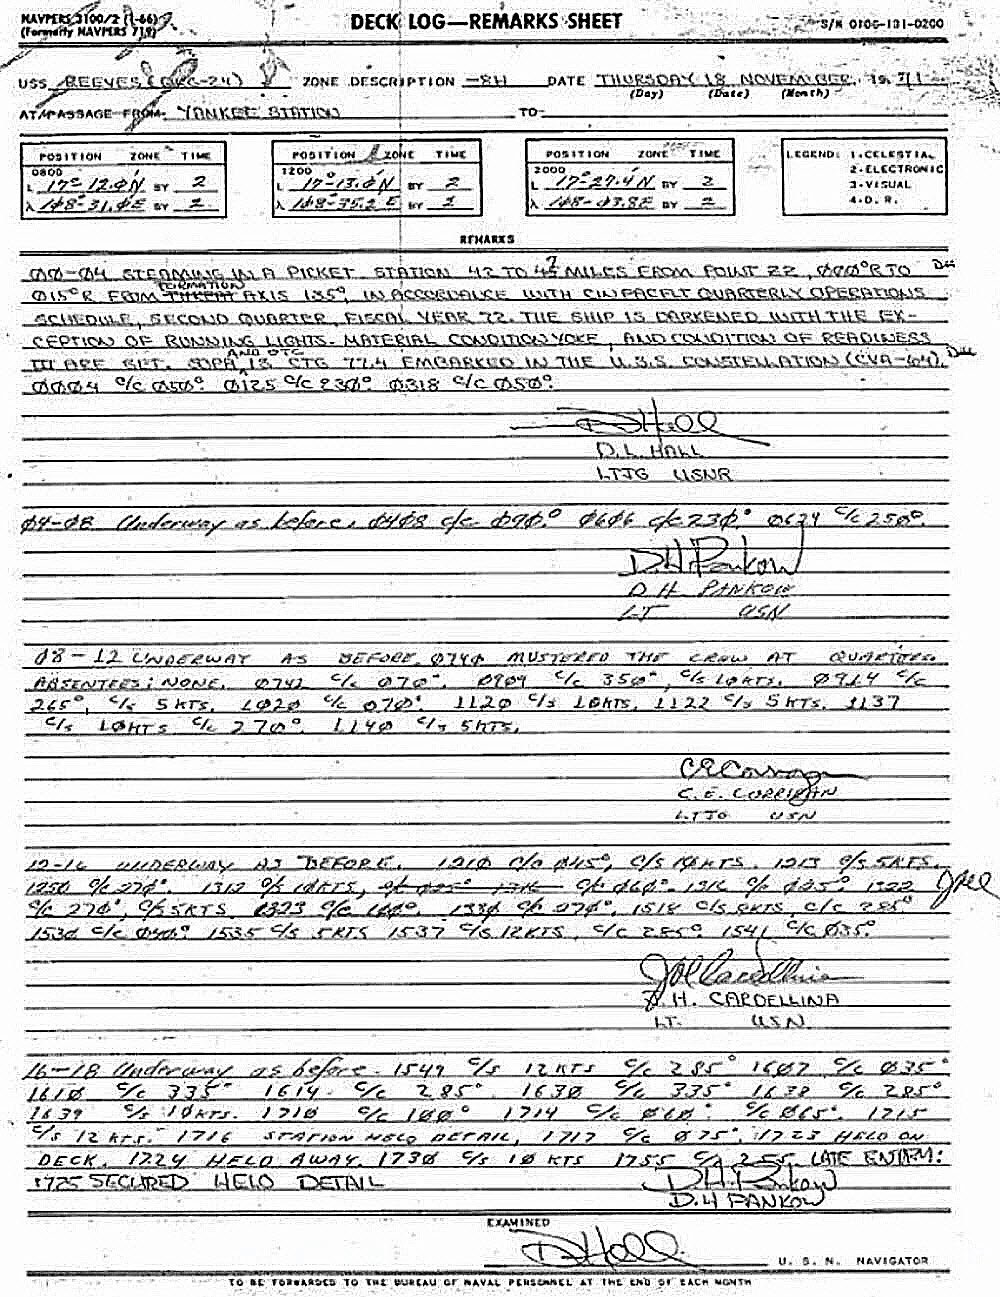 NAVPERS 3100/2 (1-66)
(Formerly NAVPERS 719)
DECK LOG—REMARKS SHEET
S/N 0106-131-0200
USS REEVES (DLG-24) ZONE DESCRIPTION -8H DATE THURSDAY 18 NOVEMBER, 1971
(Day) (Date) (Month)
AT/PASSAGE FROM YANKEE STATION TO
POSITION ZONE TIME
0800
L 17°-12.0N BY 2
λ 108-31.0E BY 2
POSITION ZONE TIME
1200
L 17-13.0N BY 2
λ 108-35.2E BY 2
POSITION ZONE TIME
2000
L 17-27.4N BY 2
λ 108-03.8E BY 2
LEGEND: 1-CELESTIAL
2-ELECTRONIC
3-VISUAL
4-D. R.
REMARKS
00-04 STEAMING IN A PICKET STATION 42 TO MILES FROM POINT 22, 000°R TO
015°R FROM THREAT FORMATION AXIS 135°, IN ACCORDANCE WITH CINPACFLT QUARTERLY OPERATIONS
SCHEDULE, SECOND QUARTER, FISCAL YEAR 72. THE SHIP IS DARKENED WITH THE EX-
CEPTION OF RUNNING LIGHTS. MATERIAL CONDITION YOKE, AND CONDITION OF READINESS
III ARE SET. SOPA AND OTC IS CTG 77.4 EMBARKED IN THE U.S.S. CONSTELLATION (CVA-64).
0004 c/c 050°. 0125 c/c 230°. 0318 c/c 050°.
D Hall
D. L. HALL
LTJG USNR
04-08 Underway as before. 0408 c/c 070°. 0606 c/c 230°. 0624 c/c 250°.
D.H. Pankow
D H PANKOW
LT USN
08-12 UNDERWAY AS BEFORE. 0740 MUSTERED THE CREW AT QUARTERS.
ABSENTEES: NONE. 0742 c/c 070°. 0909 c/c 350°, c/s 10KTS. 0914 c/c
265°, c/s 5 KTS. 1020 c/c 070°. 1120 c/s 10KTS. 1122 c/s 5 KTS. 1137
c/s 10KTS c/c 270°. 1140 c/s 5KTS.
C E Corrigan
C. E. CORRIGAN
LTJG USN
12-16 UNDERWAY AS BEFORE. 1210 c/c 045°, c/s 10KTS. 1213 c/s 5KTS.
1250 c/c 270°. 1312 c/s 10KTS, c/c 025° 1316 c/c 060°. 1316 c/c 025° 1322
c/c 270°, c/s 5KTS. 1323 c/c 160°. 1330 c/c 270°. 1518 c/s 8KTS, c/c 285°
1530 c/c 040°. 1535 c/s 5KTS 1537 c/s 12KTS, c/c 285°. 1541 c/c 035°.
H. CARDELLINA
LT. USN
16-18 Underway as before. 1549 c/s 12KTS c/c 285° 1607 c/c 035°
1610 c/c 335° 1614 c/c 285° 1630 c/c 335° 1638 c/c 285°
1639 c/s 10KTS. 1710 c/c 100° 1714 c/c 060° c/c 065°. 1715
c/s 12 KTS. 1716 STATION HELO DETAIL, 1717 c/c 075°. 1723 HELO ON
DECK. 1724 HELO AWAY. 1730 c/s 10 KTS 1755 c/c 255. LATE ENTRY:
1725 SECURED HELO DETAIL
D.H. Pankow
D.H PANKOW
EXAMINED
D Hall
U. S. N. NAVIGATOR
TO BE FORWARDED TO THE BUREAU OF NAVAL PERSONNEL AT THE END OF EACH MONTH